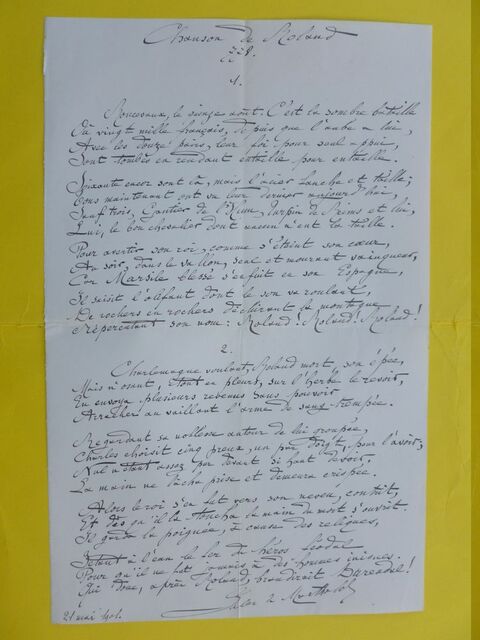 Chanson de Roland
1.
Roncevaux, le seize août. C'est la sombre bataille
Où vingt mille français, depuis que l'aube a lui,
Avec les douze pairs, leur foi pour seul appui,
Sont tombés en rendant entaille pour entaille.
Soixante encor sont là, mais l'acier tranche et taille;
Tous maintenant ont vu leur dernier aujourd'hui,
Sauf trois, Gautier de l'Hum, Turpin de Reims et lui,
Lui, le bon chevalier dont aucun n'eut la taille.
Pour avertir son roi, comme s'éteint son cœur,
Au soir, dans le vallon, seul et mourant vainqueur,
Car Marsile blessé s'enfuit en son Espagne,
Il saisit l'olifant dont le son va roulant,
De rochers en rochers déchirant la montagne
Répercutant son nom: Roland! Roland! Roland!
2.
Charlemagne voulait, Roland mort, son épée,
Mais n'osant, étant en pleurs, sur l'herbe le revoir,
En envoya plusieurs revenus sans pouvoir
Arracher au vaillant l'arme de sang trempée.
Regardant sa noblesse autour de lui groupée,
Charles choisit cinq preux, un par doigt, pour l'avoir,
Nul n'étant assez pur devant si haut devoir,
La main ne lâcha prise et demeura crispée.
Alors le roi s'en fut vers son neveu, contrit,
Et dès qu'il la toucha la main du mort s'ouvrit.
Il garda la poignée, à cause des reliques,
Jetant à l'eau le fer du héros féodal
Pour qu'il ne fut jamais à des hommes iniques.
Qui donc, après Roland, brandirait Durendal!
21 mai 1901.